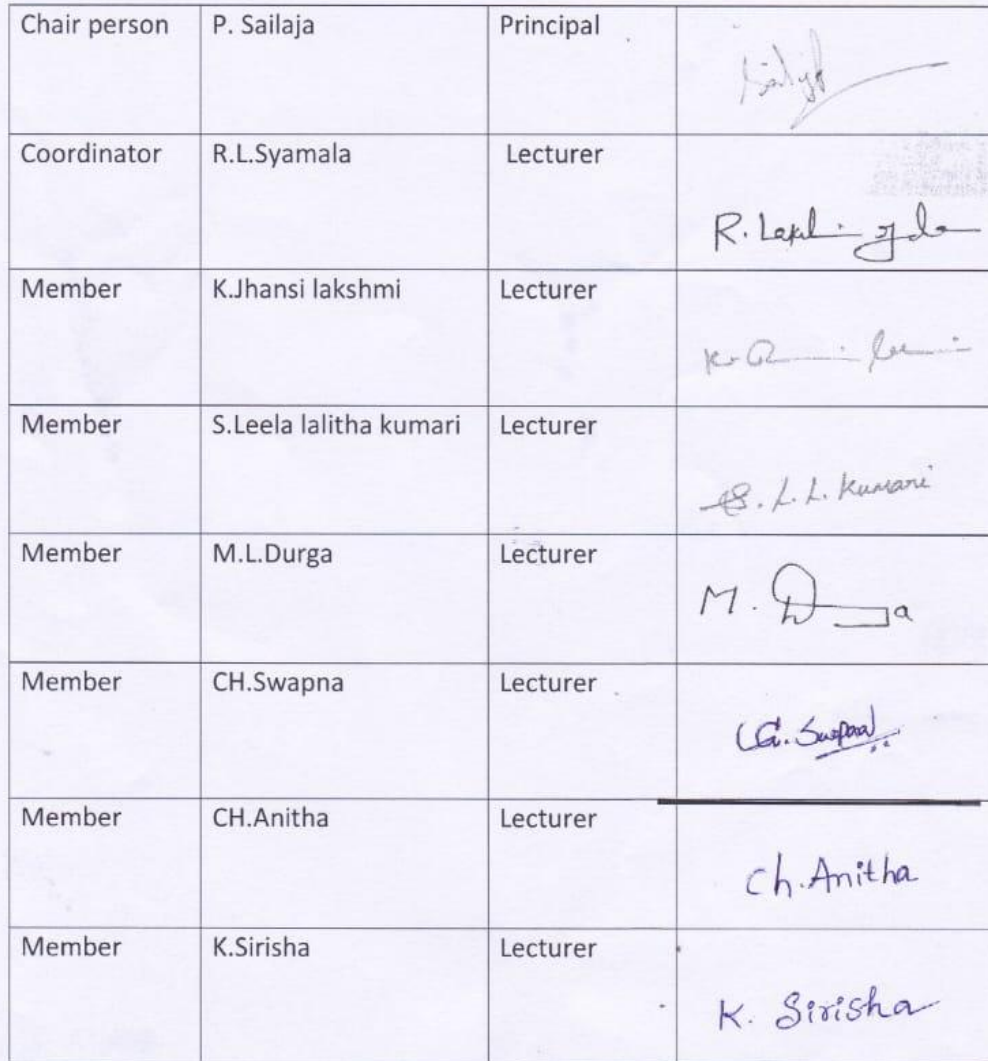 Chair person P. Sailaja Principal
Coordinator R.L.Syamala Lecturer
R.
Member K.Jhansi lakshmi Lecturer
K.
Member S.Leela lalitha kumari Lecturer
S. L. L. Kumari
Member M.L.Durga Lecturer
M.
Member CH.Swapna Lecturer
Member CH.Anitha Lecturer
Ch. Anitha
Member K.Sirisha Lecturer
K. Sirisha